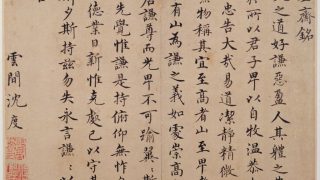 齋銘
之道好謙惡盈人其體之
其所以君子卑以自牧溫恭
忠告大哉易道潔靜精微
物稱其宜至高者山至卑
有山為謙之義如處崇高
君謙尊而光卑不可踰冀
先覺惟謙是持俯仰無怍
德業日新惟克己以守
斯夕斯持茲勿失永言謙
雲間沈度